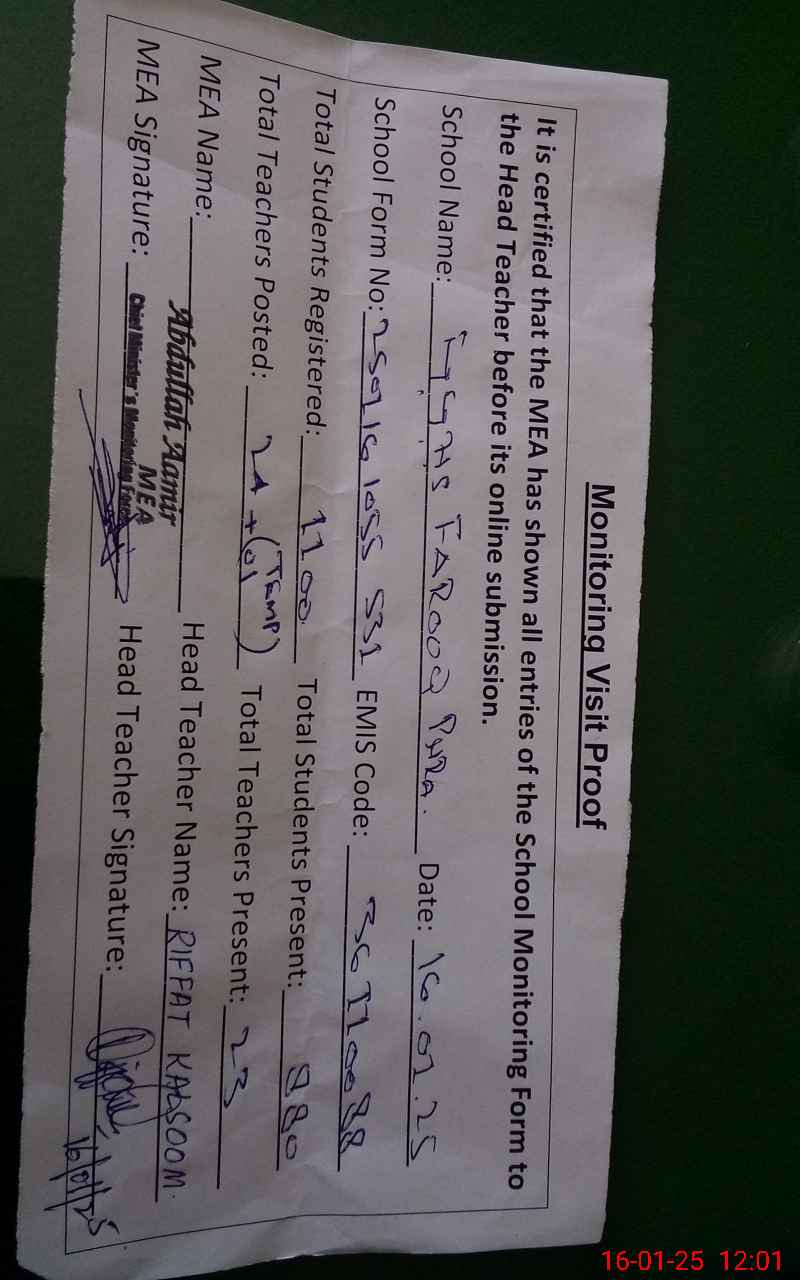 Monitoring Visit Proof
It is certified that the MEA has shown all entries of the School Monitoring Form to
the Head Teacher before its online submission.
School Name: FAROOQ PURA. Date: 16.01.25
School Form No: EMIS Code: 36110088
Total Students Registered: 1100 Total Students Present: 880
Total Teachers Posted: 24 + (01 (TEMP)) Total Teachers Present: 23
MEA Name: Abdullah Aamir Head Teacher Name: RIFFAT KALSOOM.
MEA
MEA Signature: Chief Minister's Monitoring Force Head Teacher Signature:
16/01/25
16-01-25 12:01